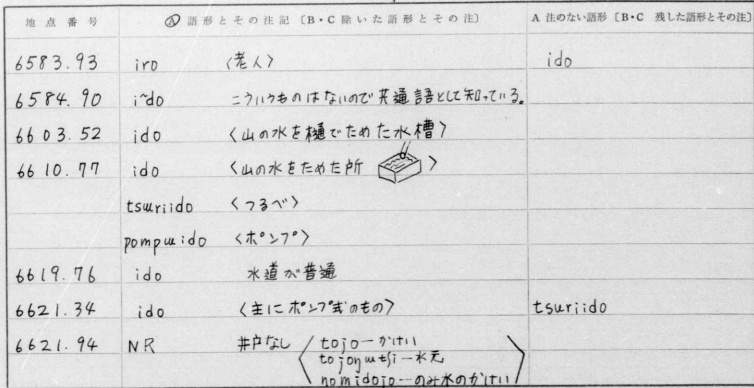 地点番号 Ⓐ 語形とその注記〔B・C 除いた語形とその注〕 A 注のない語形〔B・C 残した語形とその注〕
6583.93 iro 〈老人〉 ido
6584.90 ĩdo こういうものはないので共通語として知っている。
6603.52 ido 〈山の水を樋でためた水槽〉
6610.77 ido 〈山の水をためた所 〉
tsɯriido 〈つるべ〉
pompɯido 〈ポンプ〉
6619.76 ido 水道が普通
6621.34 ido 〈主にポンプ式のもの〉 tsɯriido
6621.94 NR 井戸なし 〈tojo―かけい
tojoŋɯtʃi―水元
nomidojo―のみ水のかけい〉